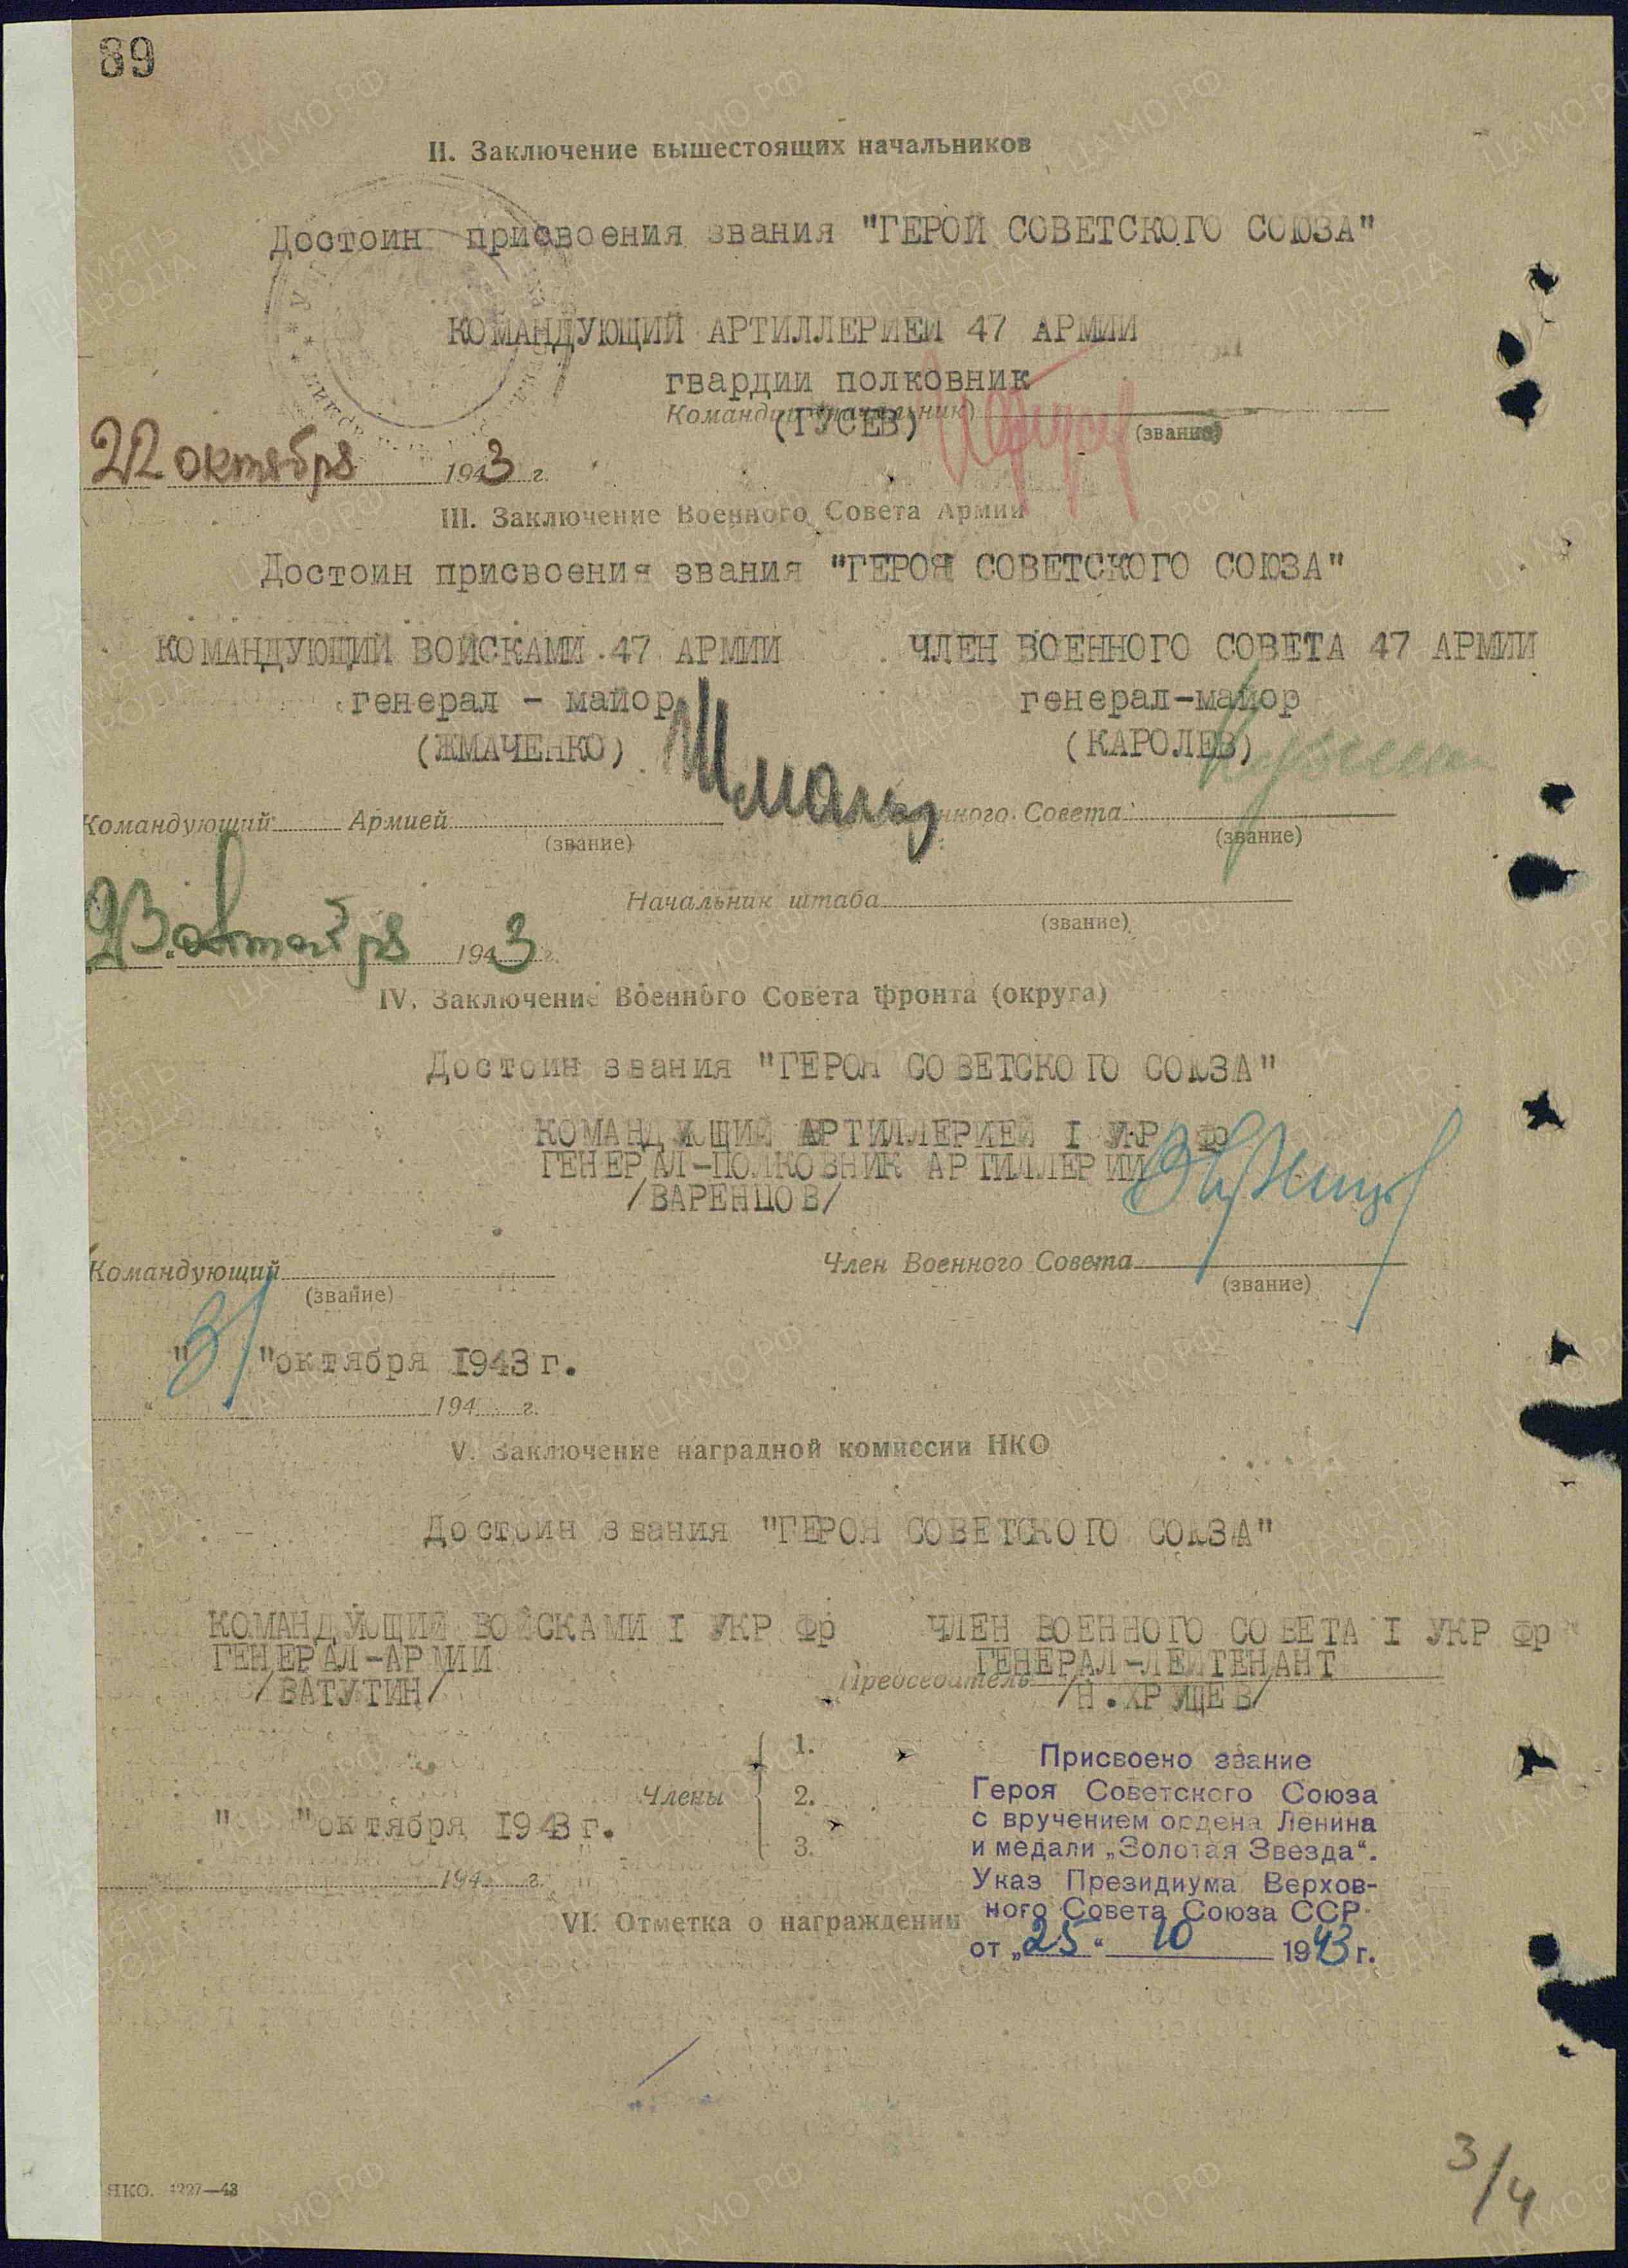 89
II. Заключение вышестоящих начальников
Достоин присвоения звания "ГЕРОЙ СОВЕТСКОГО СОЮЗА"
КОМАНДУЮЩИЙ АРТИЛЛЕРИЕЙ 47 АРМИИ
гвардии полковник
Командир (начальник)
(ГУСЕВ)
(звание)
22 октября 1943 г.
III. Заключение Военного Совета Армии
Достоин присвоения звания "ГЕРОЯ СОВЕТСКОГО СОЮЗА"
КОМАНДУЮЩИЙ ВОЙСКАМИ 47 АРМИИ ЧЛЕН ВОЕННОГО СОВЕТА 47 АРМИИ
генерал - майор генерал-майор
(ЖМАЧЕНКО) (КАРОЛЕВ)
Командующий Армией Военного Совета
(звание) (звание)
Начальник штаба
(звание)
23 октября 1943 г.
IV. Заключение Военного Совета фронта (округа)
Достоин звания "ГЕРОЯ СОВЕТСКОГО СОЮЗА"
КОМАНДУЮЩИЙ АРТИЛЛЕРИЕЙ I УКР Фр
ГЕНЕРАЛ-ПОЛКОВНИК АРТИЛЛЕРИИ
/ВАРЕНЦОВ/
Командующий Член Военного Совета
(звание) (звание)
"31"октября 1943г.
" 194 г.
V. Заключение наградной комиссии НКО
Достоин звания "ГЕРОЯ СОВЕТСКОГО СОЮЗА"
КОМАНДУЮЩИЙ ВОЙСКАМИ I УКР Фр ЧЛЕН ВОЕННОГО СОВЕТА I УКР Фр
ГЕНЕРАЛ-АРМИИ ГЕНЕРАЛ-ЛЕЙТЕНАНТ
Председатель
/ВАТУТИН/ /Н.ХРУЩЕВ/
Члены
1.
2.
3.
" "октября 1943г.
194 г.
Присвоено звание
Героя Советского Союза
с вручением ордена Ленина
и медали „Золотая Звезда“.
Указ Президиума Верхов-
ного Совета Союза ССР
от „25“ 10 1943 г.
VI. Отметка о награждении
НКО. 1227—43
3/4